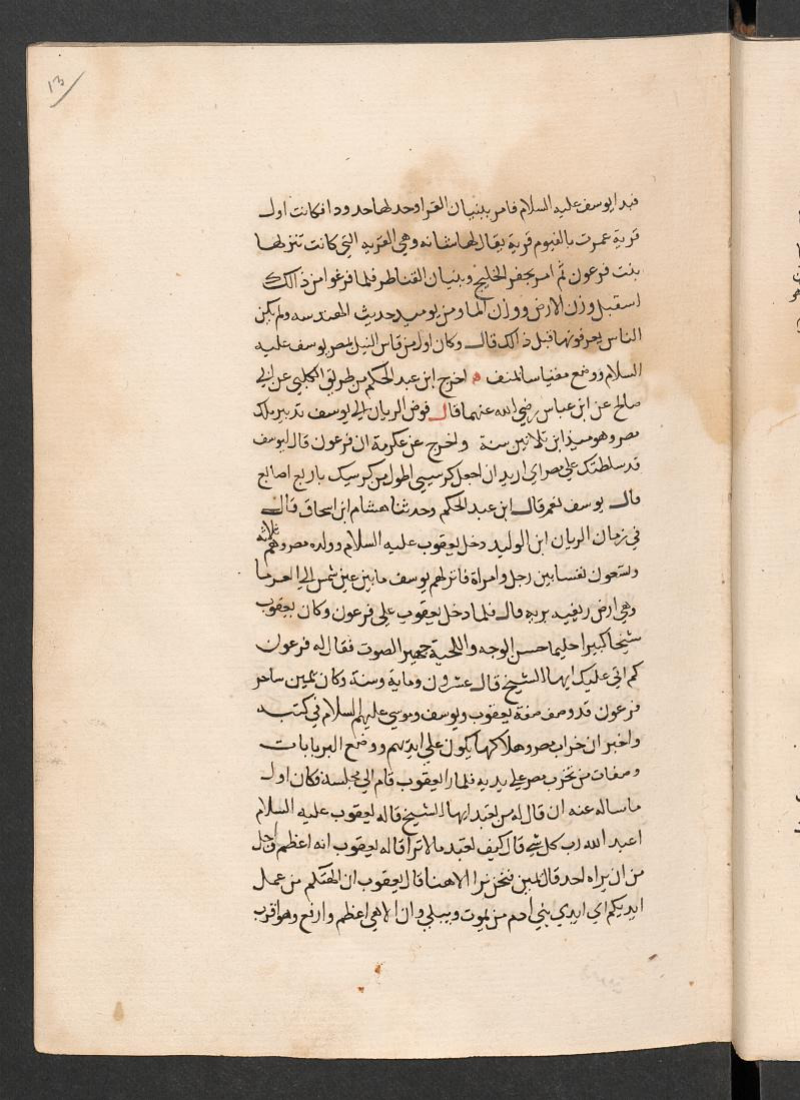 13
فبدا يوسف عليه السلام فامر ببنيان القرا وحد لها حدودا فكانت اول
قرية عمرت بالفيوم قرية يقال لها شانه وهي القريه التي كانت تنزلها
بنت فرعون ثم امر بحفر الخليج وبنيان القناطر فلما فرغوا من ذالك
استقبل وزن الارض ووزن الما ومن يوميد حديث الهندسه ولم يكن
الناس يعرفونها قبل ذالك قال وكان اول من قاس النيل بمصر يوسف عليه
السلام ووضع مقياسا لمنف ه اخرج ابن عبد الحكم من طريق الكلبي عن ابي
صالح عن ابن عباس رضي الله عنهما قال فوض الريان الي يوسف تدبير ملك
مصر وهو يوميذ ابن ثلاثين سنة واخرج عن عكرمة ان فرعون قال ليوسف
قد سلطتك علي مصر اي اريد ان اجعل كرسيي اطول من كرسيك باربع اصابع
قال يوسف نعم قال ابن عبد الحكم وحدثنا هشام ابن اسحاق قال
في زمان الريان ابن الوليد دخل يعقوب عليه السلام وولده مصر وهم ثلاثة
وتسعون نفسا بين رجل وامراة فانزلهم يوسف ما بين عين شمس الي الفرما
وهي ارض ريفيه بريه قال فلما دخل يعقوب علي فرعون وكان يعقوب
شيخا كبيرا حليما حسن الوجه واللحية جهير الصوت فقال له فرعون
كم اتي عليك ايها الشيخ قال عشرون وماية وسنة وكان يمين ساحر
فرعون قد وصف صفة يعقوب ويوسف وموسي عليهم السلام في كتبه
واخبر ان خراب مصر وهلاكها يكون علي ايديهم ووضع البربايات
وصفات من تخرب مصر علي يديه فلما را يعقوب قام الي مجلسه فكان اول
ما ساله عنه ان قال له من تعبد ايها الشيخ قاله يعقوب عليه السلام
اعبد الله رب كل شي قال كيف تعبد ما لا ترا قاله يعقوب انه اعظم واجل
من ان يراه احد قال يمين فنحن نرا الاهنا قال يعقوب ان الهتكم من عمل
ايديكم اي ايدي بني ادم من يموت ويبلي وان الاهي اعظم وارفع وهو اقرب